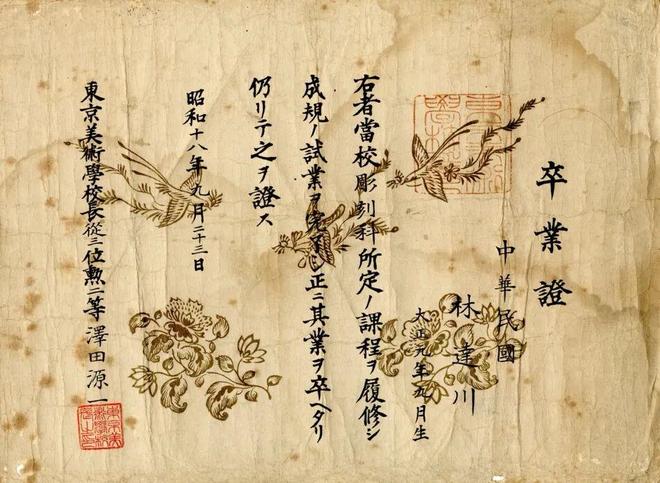 卒業證
中華民國
林達川
大正元年九月生
右者當校彫刻科所定ノ課程ヲ履修シ
成規ノ試業ヲ完了シ正ニ其業ヲ卒ヘタリ
仍リテ之ヲ證ス
昭和十八年九月二十三日
東京美術學校長從三位勲二等澤田源一